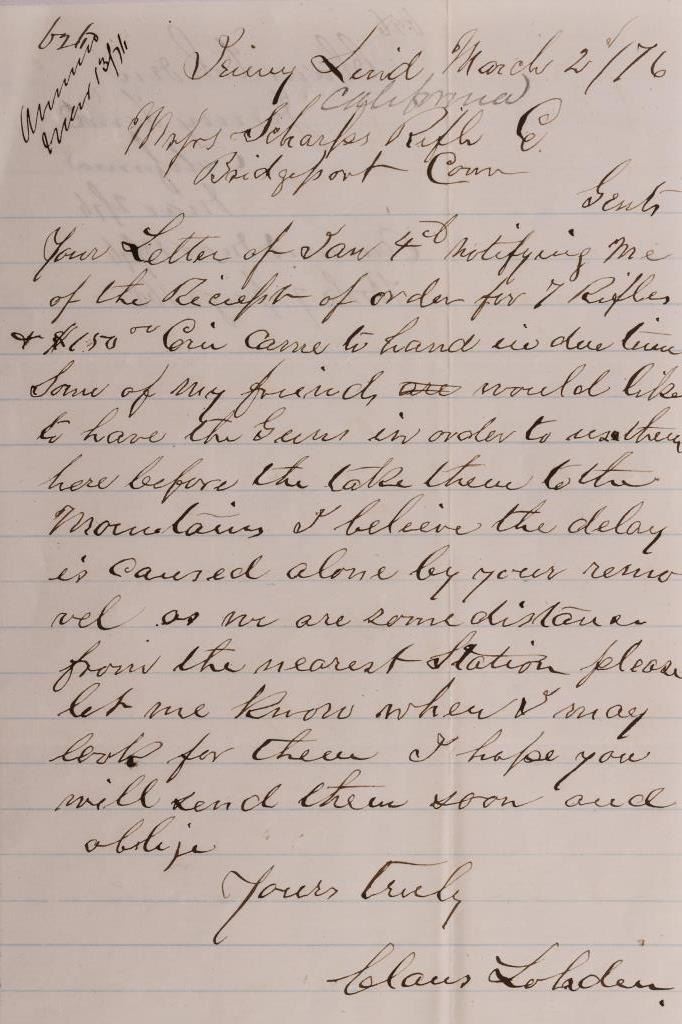 Jenny Lind, March 2d/76
California
Mssrs Scharps Rifle Co.
Bridgeport Conn
Gents
Your Letter of Jan 4th notifying me
of the Reciept of order for 7 Rifles
& $150 00 Coin came to hand in due time
Some of my friends are would like
to have the Guns in order to use them
here before the take them to the
Mountains I believe the delay
is caused alone by your remo
vel as we are some distance
from the nearest Station please
let me know when I may
look for them I hope you
will send them soon and
oblige
Yours truly
Claus Lohden.